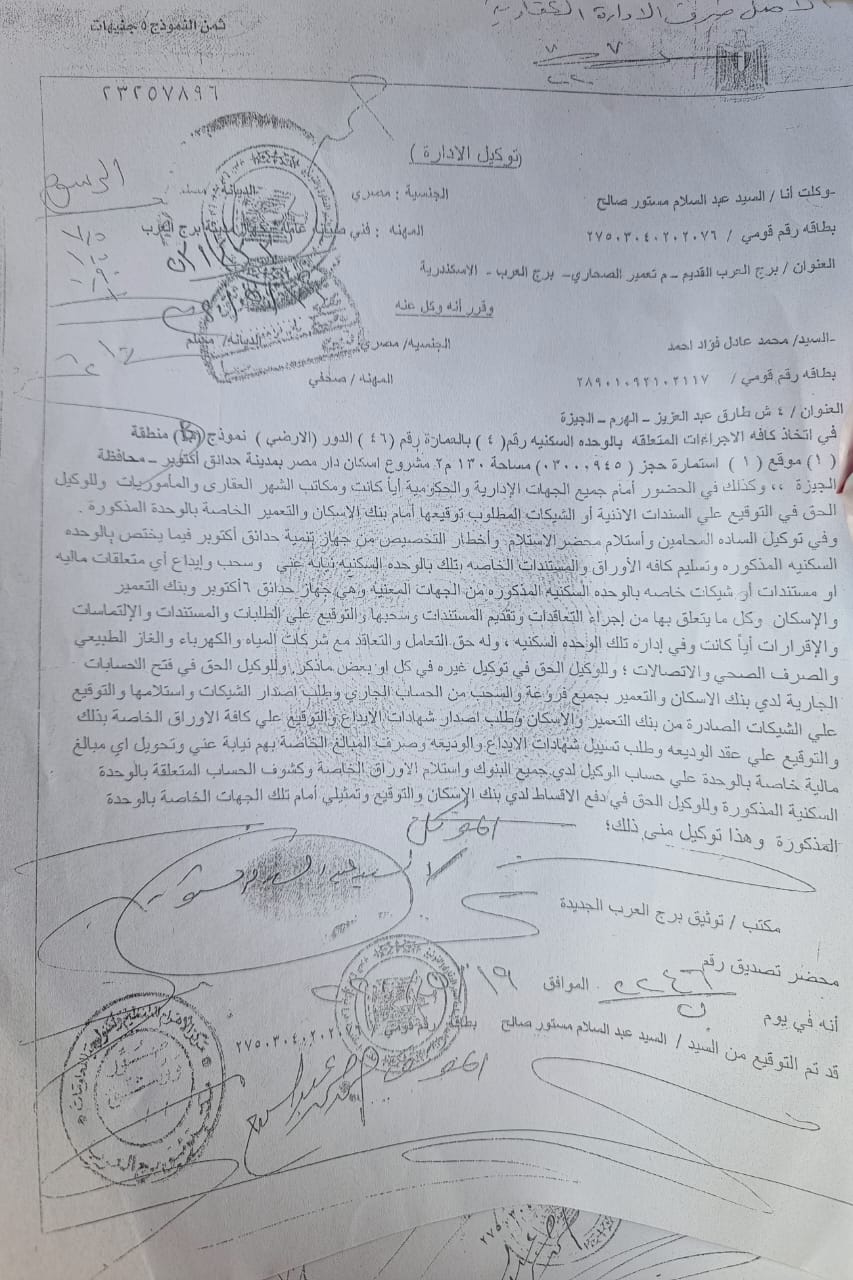 ثمن النموذج ٥ جنيهات
الاصل طرف الادارة العقارية
٢٣٢٥٧٨٩٦
(توكيل الادارة)
الرسوم
-وكلت أنا / السيد عبد السلام مستور صالح الجنسية : مصري الديانة
بطاقه رقم قومي / ٢٧٥٠٣٠٤٠٢٠٢٠٧٦ المهنه : فني برج العرب
العنوان / برج العرب القديم – م تعمير الصحاري– برج العرب - الاسكندرية
وقرر أنه وكل عنه
-السيد/ محمد عادل فؤاد احمد الجنسية/ مصري الديانة/ مسلم
بطاقه رقم قومي / ٢٨٩٠١٠٩٢١٠٢١١٧ المهنه / صحفي
العنوان / ٤ ش طارق عبد العزيز – الهرم – الجيزة
في اتخاذ كافه الاجراءات المتعلقه بالوحده السكنيه رقم( ٤ ) بالعمارة رقم (٤٦ ) الدور (الارضي ) نموذج منطقة
(١) موقع ( ١ ) استمارة حجز ( ٠٣٠٠٠٩٤٥ ) مساحة ١٣٠ م٢ مشروع اسكان دار مصر بمدينة حدائق أكتوبر – محافظة
الجيزة ،، وكذلك في الحضور أمام جميع الجهات الإدارية والحكومية أياً كانت ومكاتب الشهر العقارى والمأموريات وللوكيل
الحق في التوقيع علي السندات الاذنية أو الشيكات المطلوب توقيعها أمام بنك الاسكان والتعمير الخاصة بالوحدة المذكورة .
وفي توكيل الساده المحامين وأستلام محضر الاستلام وأخطار التخصيص من جهاز تنمية حدائق أكتوبر فيما يختص بالوحده
السكنيه المذكوره وتسليم كافه الأوراق والمستندات الخاصه بتلك بالوحده السكنيه نيابه عني وسحب وإيداع أي متعلقات ماليه
او مستندات أو شيكات خاصه بالوحده السكنيه المذكوره من الجهات المعنيه وهي جهاز حدائق ٦أكتوبر وبنك التعمير
والإسكان وكل ما يتعلق بها من إجراء التعاقدات وتقديم المستندات وسحبها والتوقيع علي الطلبات والمستندات والإلتماسات
والإقرارات أياً كانت وفي إداره تلك الوحده السكنيه ، وله حق التعامل والتعاقد مع شركات المياه والكهرباء والغاز الطبيعي
والصرف الصحي والاتصالات ؛ وللوكيل الحق في توكيل غيره في كل او بعض ماذكر. وللوكيل الحق في فتح الحسابات
الجارية لدي بنك الاسكان والتعمير بجميع فروعة والسحب من الحساب الجاري وطلب اصدار الشيكات واستلامها والتوقيع
علي الشيكات الصادرة من بنك التعمير والإسكان وطلب اصدار شهادات الايداع والتوقيع علي كافة الاوراق الخاصة بذلك
والتوقيع علي عقد الوديعه وطلب تسييل شهادات الايداع والوديعه وصرف المبالغ الخاصة بهم نيابة عني وتحويل اي مبالغ
مالية خاصة بالوحدة علي حساب الوكيل لدي جميع البنوك واستلام الاوراق الخاصة وكشوف الحساب المتعلقة بالوحدة
السكنية المذكورة وللوكيل الحق في دفع الاقساط لدي بنك الإسكان والتوقيع وتمثيلي أمام تلك الجهات الخاصة بالوحدة
المذكورة وهذا توكيل منى ذلك؛
الموكل
السيد عبد السلام مستور
مكتب / توثيق برج العرب الجديدة
محضر تصديق رقم
أنه في يوم الموافق ١٩
قد تم التوقيع من السيد / السيد عبد السلام مستور صالح بطاقة رقم قومي / ٢٧٥٠٣٠٤٠٢٠٢